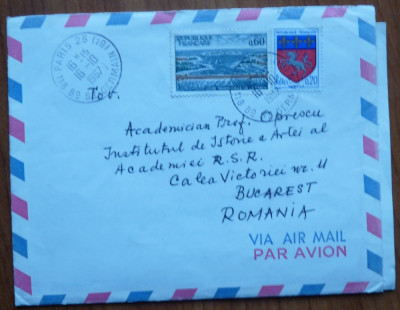 PARIS 25
18-10
0,60
0,20
Tov.
Academician Prof. Oprescu
Institutul de Istorie a Artei al
Academiei R.S.R.
Calea Victoriei nr. 11
BUCAREST
ROMANIA
VIA AIR MAIL
PAR AVION